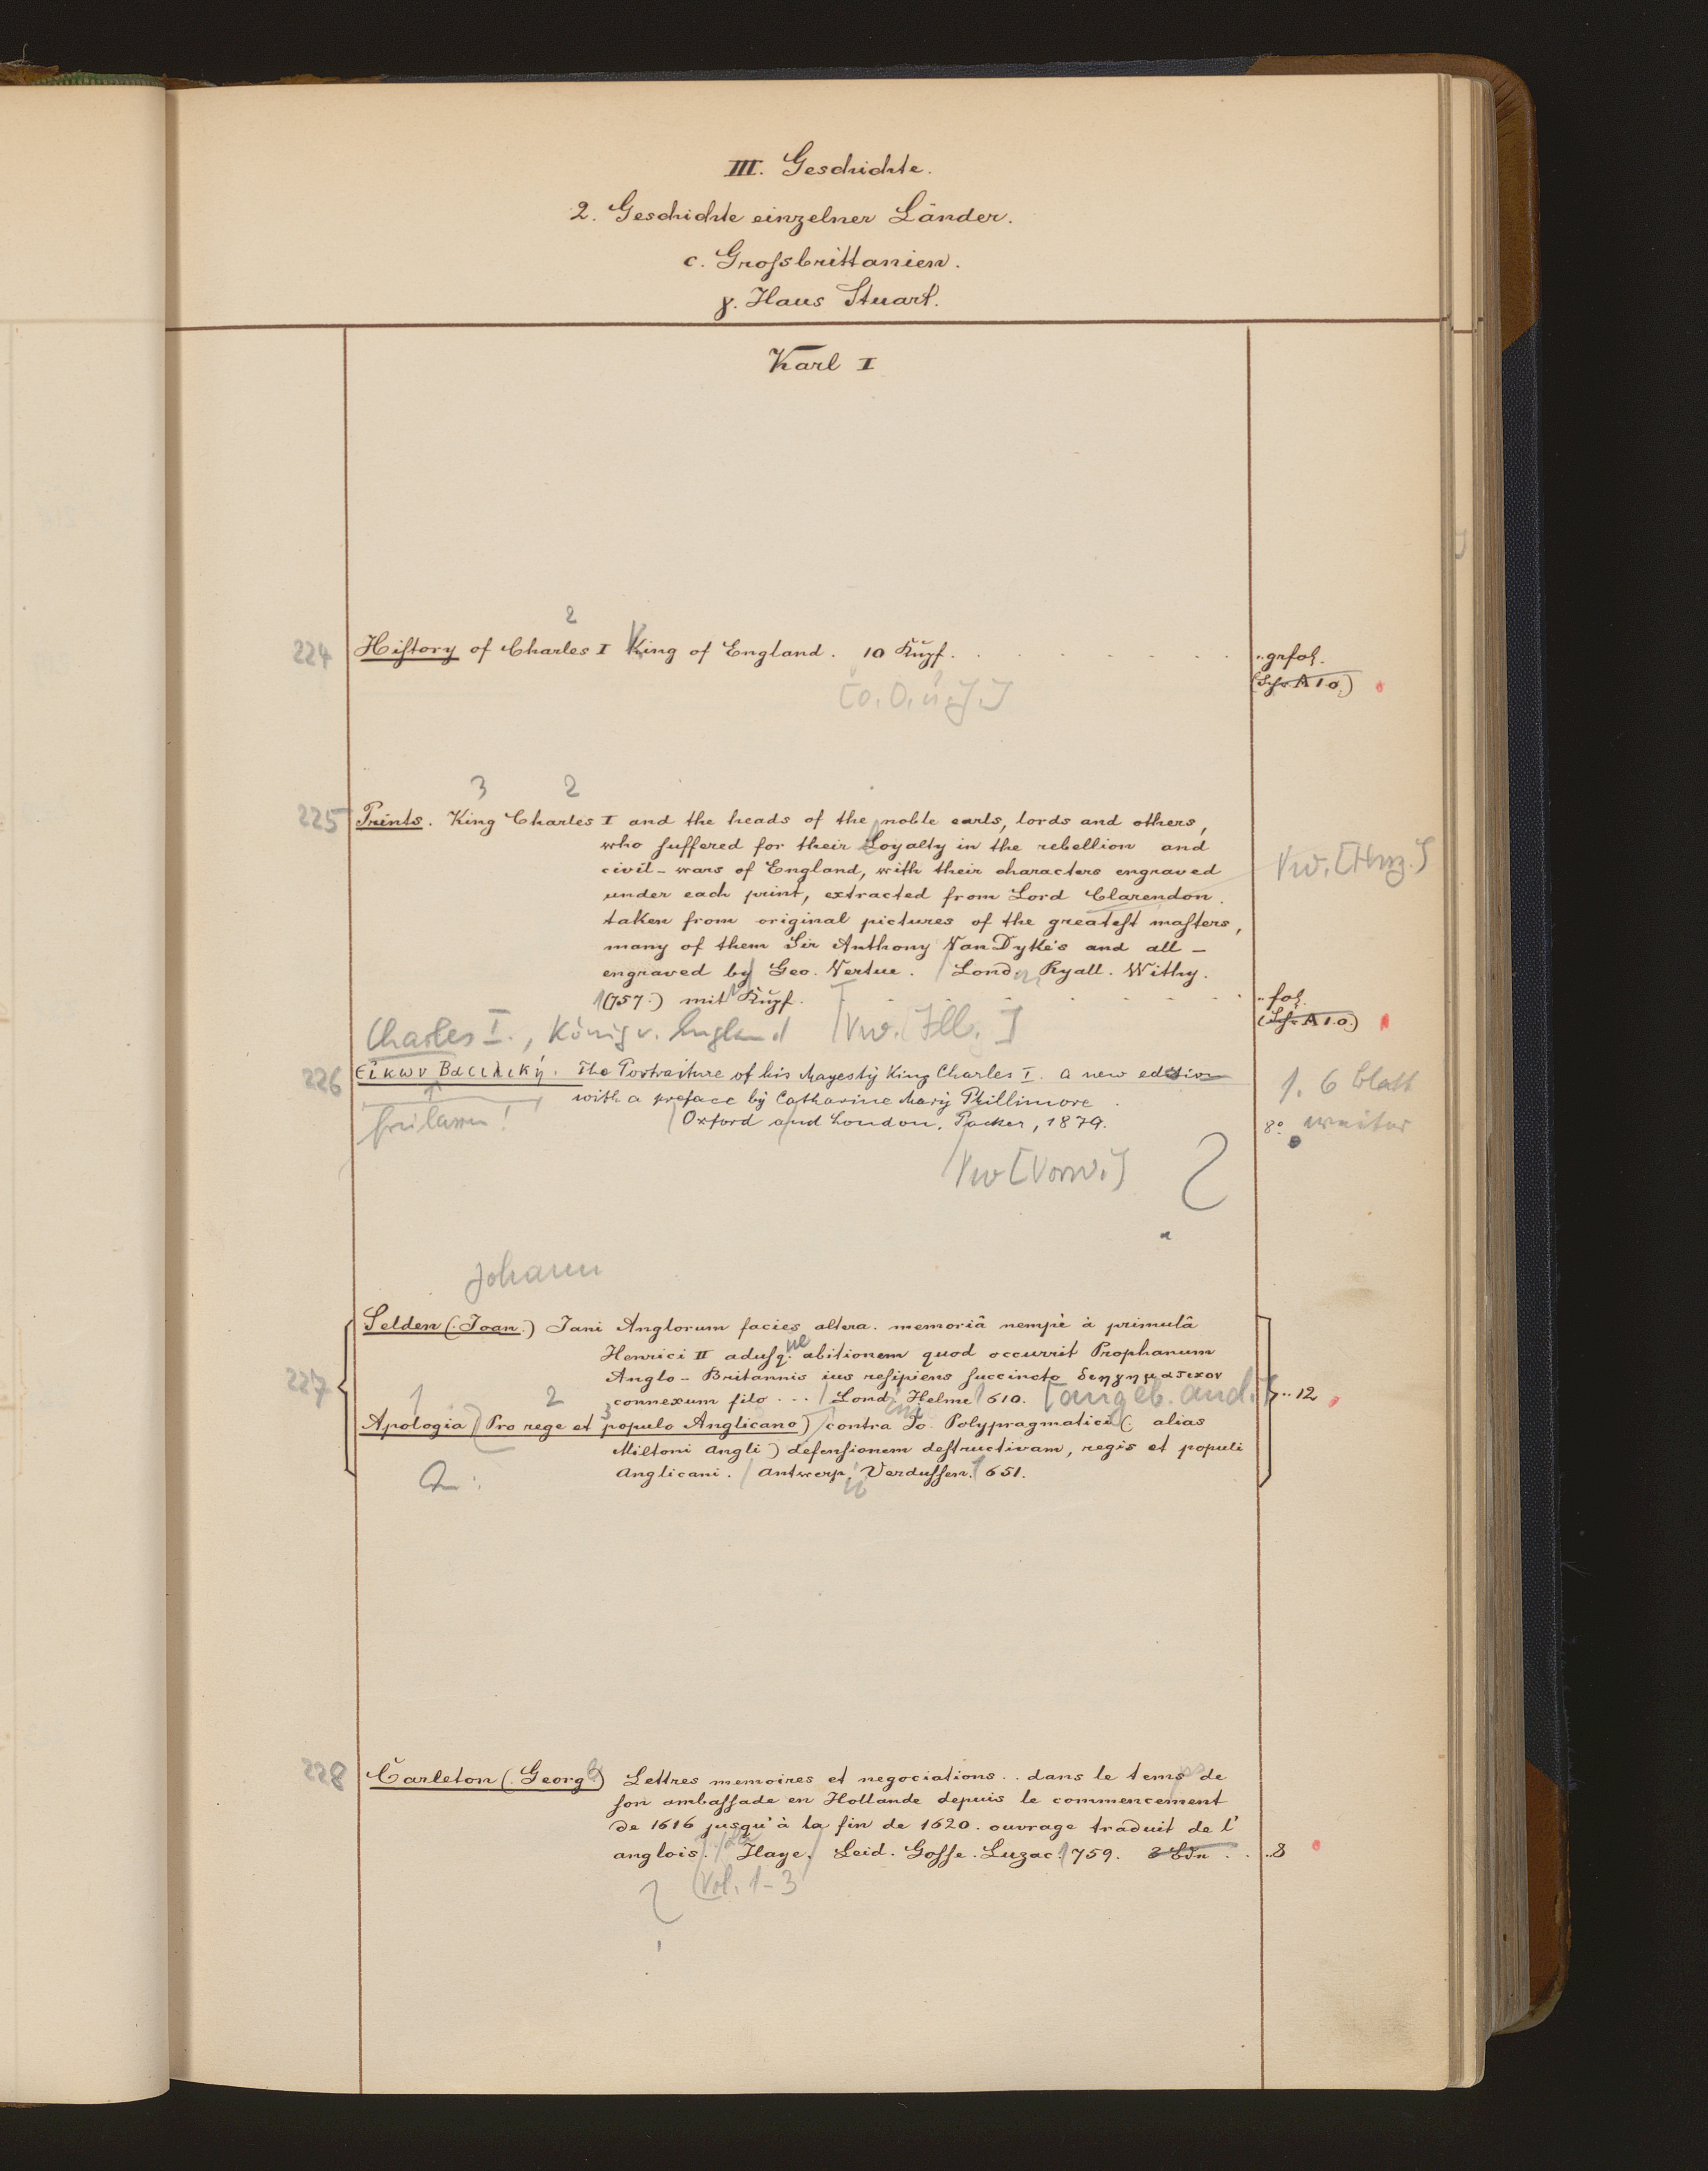 III. Geschichte.
2. Geschichte einzelner Länder.
c. Grossbrittanien.
γ. Haus Stuart.
Karl I
2
224 History of Charles I King of England. 10 Kupf. . . . . . . . . . gr fol.
(Schr. A 1 o.)
[o. O. u. J.]
3 2
225 Prints. King Charles I and the heads of the noble earls, lords and others,
who suffered for their Loyalty in the rebellion and
civil-wars of England, with their characters engraved
Vw. [Hrzg.]
under each print, extracted from Lord Clarendon.
taken from original pictures of the greatest masters,
many of them Sir Anthony Van Dyke's and all -
engraved by Geo. Vertue. Lond. Ryall. Withy.
1(757.) mit Kupf. . . . . . . fol.
(Schr. A 1 o.)
Charles I., König v. England [Vw. Ill.]
226 Εἰκων Βασιλική. The Portraiture of his Mayesty King Charles I. a new edition
1. 6 Blatt
with a preface by Catharine Mary Phillimore.
Oxford and London. Packer, 1879. 8° weiter
freilassen!
Vw [Vorw.]
Johann
Selden (. Joan.) Jani Anglorum facies altera. memoriâ nempè à primulâ
Henrici II adusq. abitionem quod occurrit Prophanum
ue
Anglo-Britannis ius resipiens succincto δεηγηματικον
227 connexum filo ... Lond. Helme 1610. [angeb. and.] .. 12
1 2 3
Apologia Pro rege et populo Anglicano) contra Jo. Polypragmatici (. alias
Miltoni Angli) defensionem destructivam, regis et populi
Anglicani. Antwerp. Verdussen. 1651.
228 Carleton (. Georg) Lettres memoires et negociations .. dans le tems de
son ambassade en Hollande depuis le commencement
de 1616 jusqu'à la fin de 1620. ouvrage traduit de l'
anglois. Haye. Leid. Gosse. Luzac. 1759. 3 bdn . . .. 8
Vol. 1-3